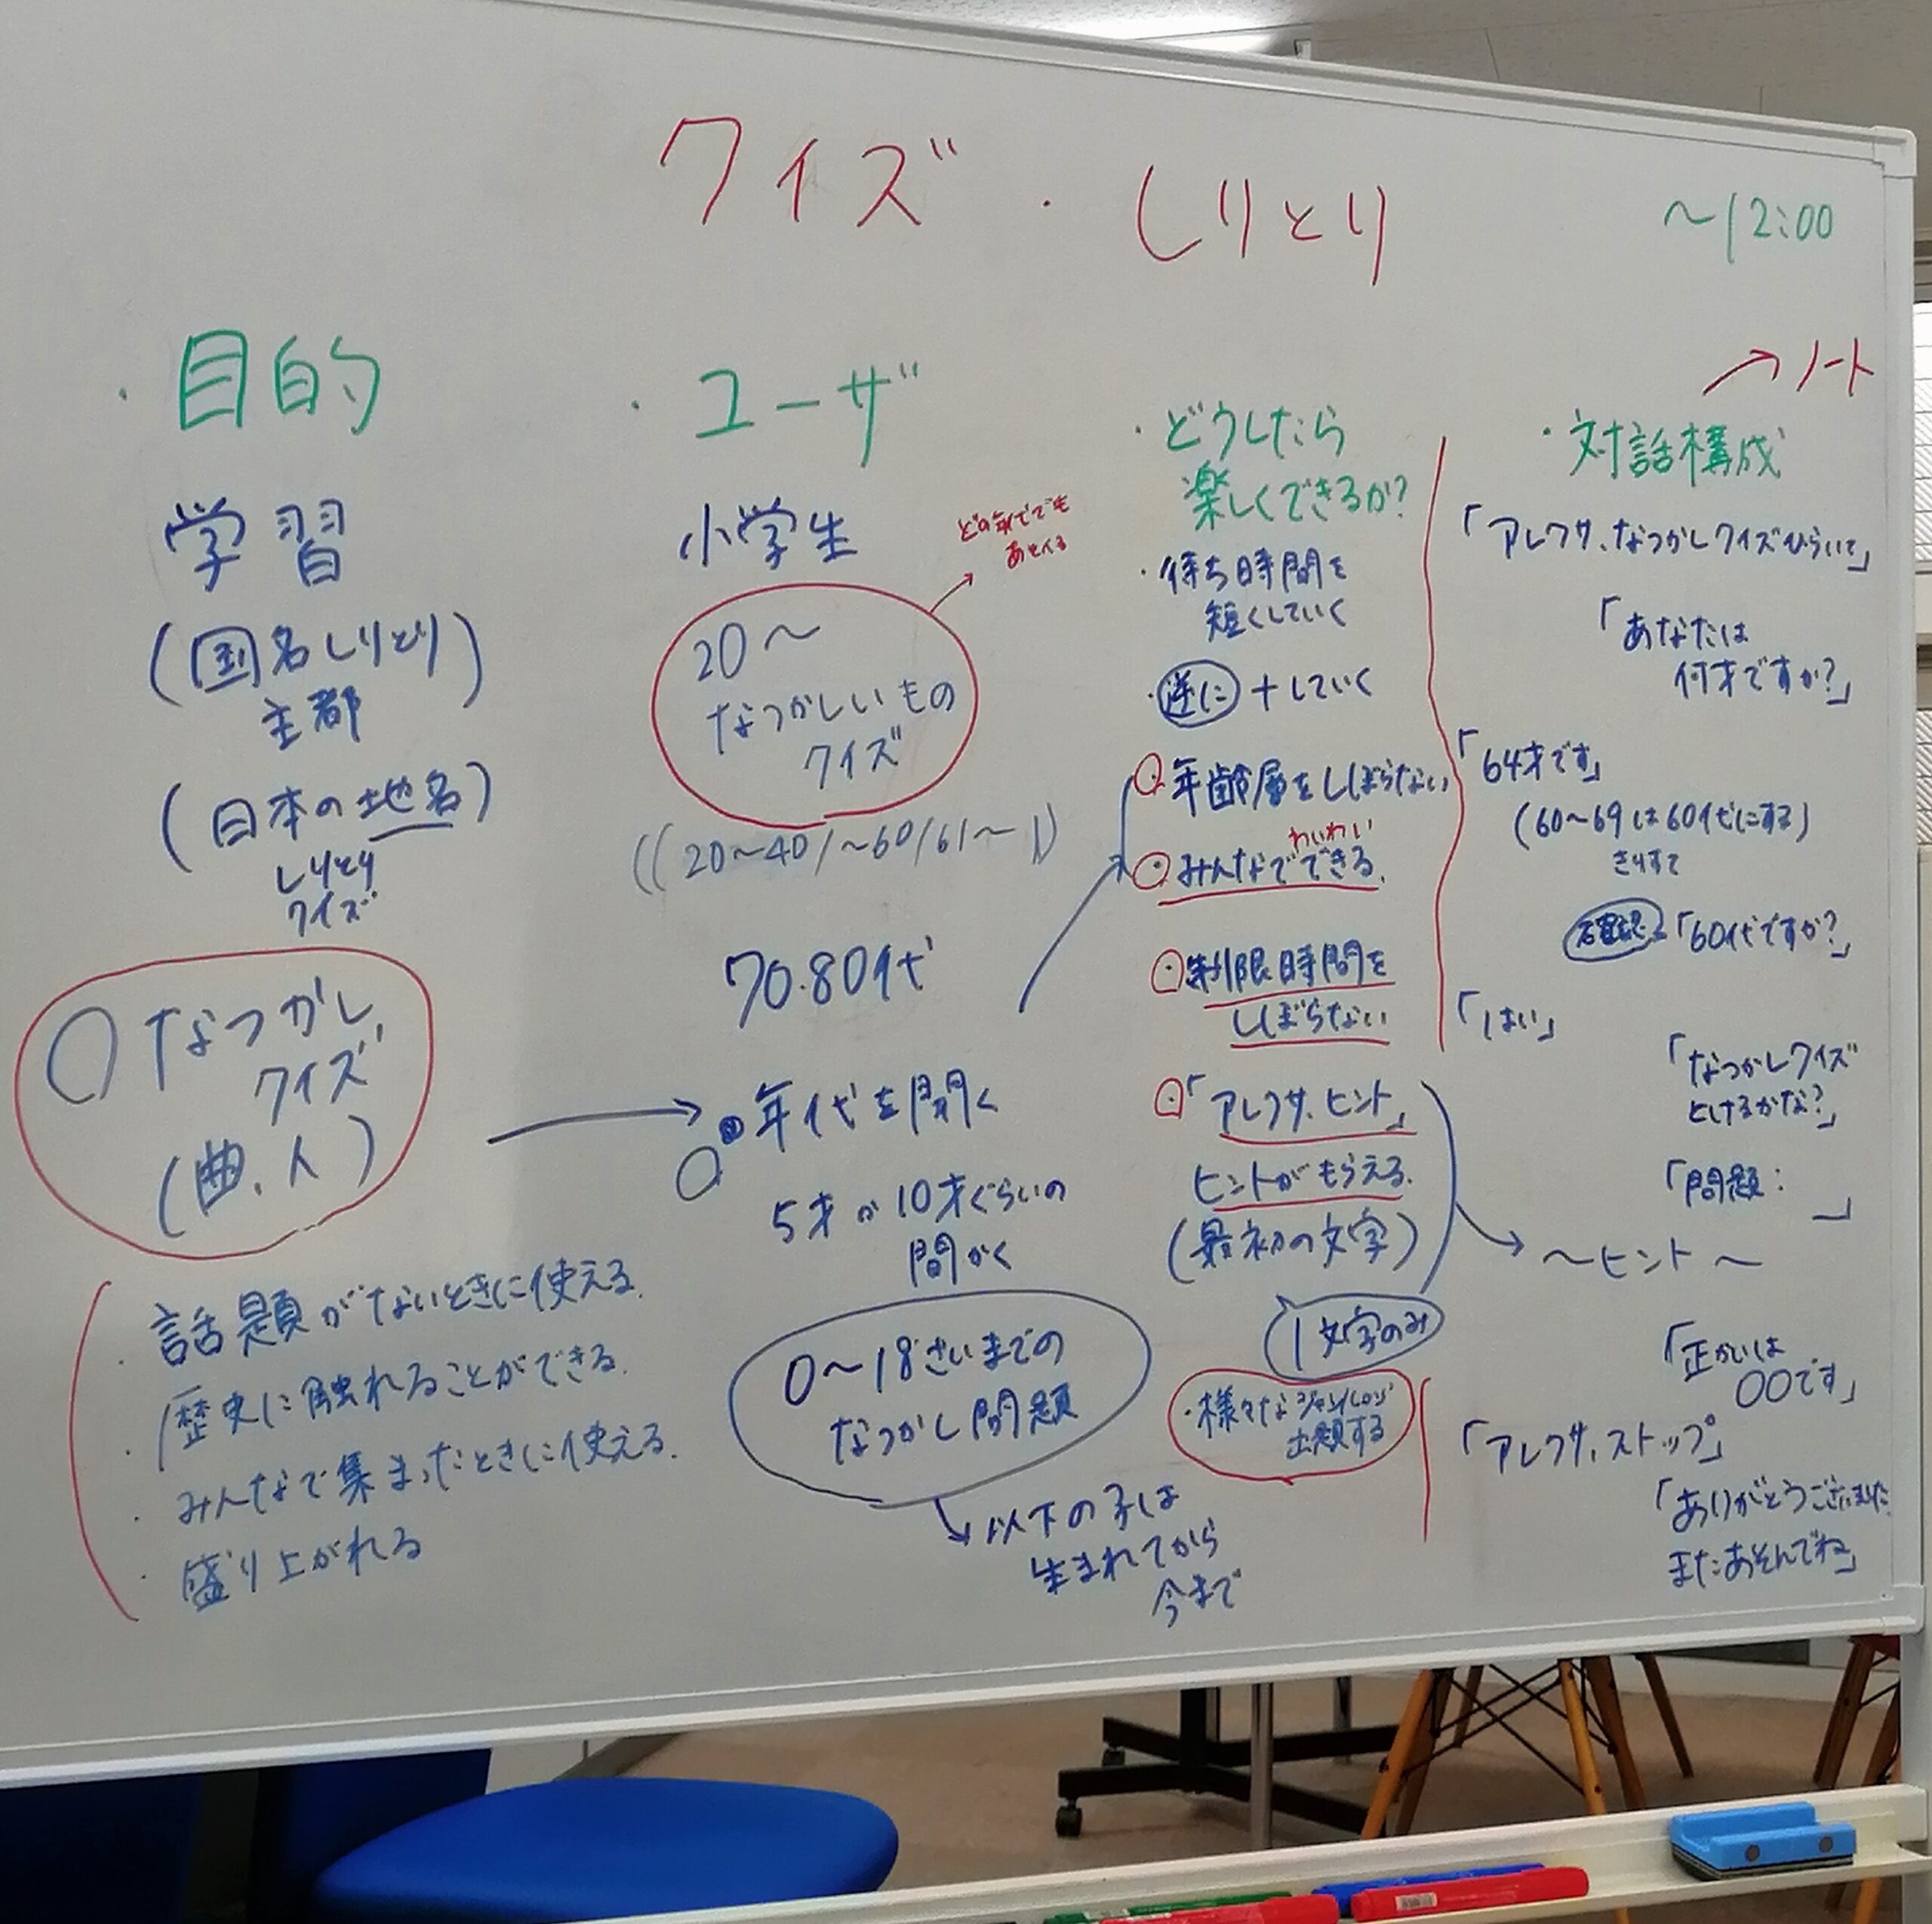 クイズ・しりとり
～12:00
・目的
学習
(国名しりとり)
主都
(日本の地名)
しりとり
クイズ
○なつかし
クイズ
(曲、人)
・話題がないときに使える.
・歴史に触れることができる.
・みんなで集まったときに使える.
・盛り上がれる
・ユーザ
小学生
どの年代でも
あそべる
20～
なつかしいもの
クイズ
((20～40/～60/61～))
70.80代
年代を聞く
5才か10才ぐらいの
間かく
0～18さいまでの
なつかし問題
以下の子は
生まれてから
今まで
・どうしたら
楽しくできるか?
・待ち時間を
短くしていく
・逆に+していく
・年齢層をしぼらない
わいわい
・みんなでできる.
・制限時間を
しぼらない
・「アレクサ、ヒント」
ヒントがもらえる.
(最初の文字)
1文字のみ
・様々なジャンルから
出題する
→ノート
・対話構成
「アレクサ、なつかしクイズひらいて」
「あなたは
何才ですか?」
「64才です」
(60～69は60代にする)
きりすて
確認「60代ですか?」
「はい」
「なつかしクイズ
とけるかな?」
「問題:　」
～ヒント～
「正かいは
〇〇です」
「アレクサ、ストップ」
「ありがとうございました
またあそんでね」